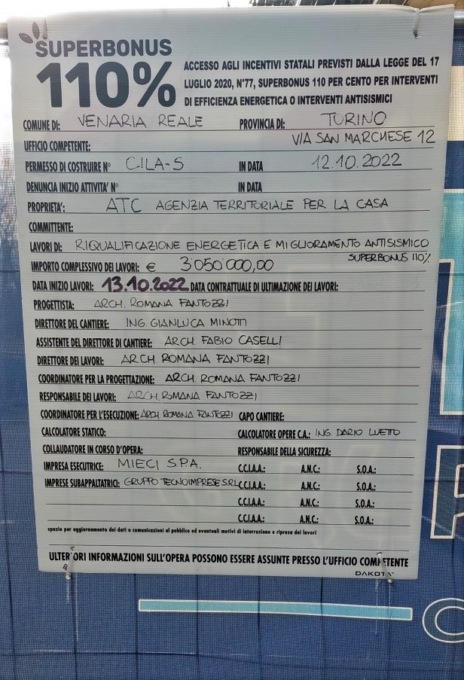 SUPERBONUS
110%
ACCESSO AGLI INCENTIVI STATALI PREVISTI DALLA LEGGE DEL 17
LUGLIO 2020, N°77, SUPERBONUS 110 PER CENTO PER INTERVENTI
DI EFFICIENZA ENERGETICA O INTERVENTI ANTISISMICI
COMUNE DI: VENARIA REALE PROVINCIA DI: TURINO
UFFICIO COMPETENTE: VIA SAN MARCHESE 12
PERMESSO DI COSTRUIRE N° CILA-S IN DATA 12.10.2022
DENUNCIA INIZIO ATTIVITA' N° IN DATA
PROPRIETA': ATC AGENZIA TERRITORIALE PER LA CASA
COMMITTENTE:
LAVORI DI: RIQUALIFICAZIONE ENERGETICA E MIGLIORAMENTO ANTISISMICO
SUPERBONUS 110%
IMPORTO COMPLESSIVO DEI LAVORI: € 3050000,00
DATA INIZIO LAVORI: 13.10.2022 DATA CONTRATTUALE DI ULTIMAZIONE DEI LAVORI:
PROGETTISTA: ARCH. ROMANA FANTOZZI
DIRETTORE DEL CANTIERE: ING. GIANLUCA MINOTTI
ASSISTENTE DEL DIRETTORE DI CANTIERE: ARCH. FABIO CASELLI
DIRETTORE DEI LAVORI: ARCH. ROMANA FANTOZZI
COORDINATORE PER LA PROGETTAZIONE: ARCH. ROMANA FANTOZZI
RESPONSABILE DEI LAVORI: ARCH. ROMANA FANTOZZI
COORDINATORE PER L'ESECUZIONE: ARCH. ROMANA FANTOZZI CAPO CANTIERE:
CALCOLATORE STATICO: CALCOLATORE OPERE C.A.: ING. DARIO
COLLAUDATORE IN CORSO D'OPERA: RESPONSABILE DELLA SICUREZZA:
IMPRESA ESECUTRICE: MIECI S.P.A. C.C.I.A.A.: A.N.C.: S.O.A.:
IMPRESE SUBAPPALTATRICI: GRUPPO TECNOIMPRESE SRL C.C.I.A.A.: A.N.C.: S.O.A.:
C.C.I.A.A.: A.N.C.: S.O.A.:
C.C.I.A.A.: A.N.C.: S.O.A.:
spazio per aggiornamento dei dati o comunicazioni al pubblico ed eventuali motivi di interruzione e ripresa dei lavori
ULTERIORI INFORMAZIONI SULL'OPERA POSSONO ESSERE ASSUNTE PRESSO L'UFFICIO COMPETENTE
DAKOTA